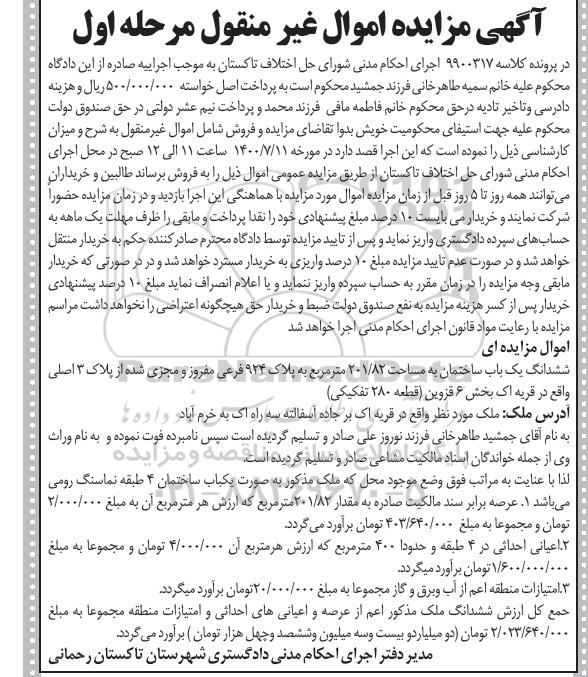 آگهی مزایده اموال غیر منقول مرحله اول
در پرونده کلاسه ۹۹۰۰۳۱۷ اجرای احکام مدنی شورای حل اختلاف تاکستان به موجب اجراییه صادره از این دادگاه
محکوم علیه خانم سمیه طاهرخانی فرزند جمشید محکوم است به پرداخت اصل خواسته ۵۰۰/۰۰۰/۰۰۰ ریال و هزینه
دادرسی وتاخیر تادیه درحق محکوم خانم فاطمه مافی فرزند محمد و پرداخت نیم عشر دولتی در حق صندوق دولت
محکوم علیه جهت استیفای محکومیت خویش بدوا تقاضای مزایده و فروش شامل اموال غیرمنقول به شرح و میزان
کارشناسی ذیل را نموده است که این اجرا قصد دارد در مورخه ۱۴۰۰/۷/۱۱ ساعت ۱۱ الی ۱۲ صبح در محل اجرای
احکام مدنی شورای حل اختلاف تاکستان از طریق مزایده عمومی اموال ذیل را به فروش برساند طالبین و خریداران
می‌توانند همه روز تا ۵ روز قبل از زمان مزایده اموال مورد مزایده با هماهنگی این اجرا بازدید و در زمان مزایده حضوراً
شرکت نمایند و خریدار می بایست ۱۰ درصد مبلغ پیشنهادی خود را نقدا پرداخت و مابقی را ظرف مهلت یک ماهه به
حساب‌های سپرده دادگستری واریز نماید و پس از تایید مزایده توسط دادگاه محترم صادرکننده حکم به خریدار منتقل
خواهد شد و در صورت عدم تایید مزایده مبلغ ۱۰ درصد واریزی به خریدار مسترد خواهد شد و در در صورتی که خریدار
مابقی وجه مزایده را در زمان مقرر به حساب سپرده واریز ننماید و یا اعلام انصراف نماید مبلغ ۱۰ درصد پیشنهادی
خریدار پس از کسر هزینه مزایده به نفع صندوق دولت ضبط و خریدار حق هیچگونه اعتراضی را نخواهد داشت مراسم
مزایده با رعایت مواد قانون اجرای احکام مدنی اجرا خواهد شد
اموال مزایده ای
ششدانگ یک باب ساختمان به مساحت ۲۰۱/۸۲ مترمربع به پلاک ۹۲۴ فرعی مفروز و مجزی شده از پلاک ۳ اصلی
واقع در قریه اک بخش ۶ قزوین (قطعه ۲۸۰ تفکیکی)
آدرس ملک: ملک مورد نظر واقع در قریه اک بر جاده آسفالته سه راه اک به خرم آباد
به نام آقای جمشید طاهرخانی فرزند نوروز علی صادر و تسلیم گردیده است سپس نامبرده فوت نموده و به نام وراث
وی از جمله خواندگان اسناد مالکیت مشاعی صادر و تسلیم گردیده است.
لذا با عنایت به مراتب فوق وضع موجود محل که ملک مذکور به صورت یکباب ساختمان ۴ طبقه نماسنگ رومی
می‌باشد ۱. عرصه برابر سند مالکیت صادره به مقدار ۲۰۱/۸۲مترمربع که ارزش هر مترمربع آن به مبلغ ۲/۰۰۰/۰۰۰
تومان و مجموعا به مبلغ ۴۰۳/۶۴۰/۰۰۰ تومان برآورد می‌گردد.
۲.اعیانی احداثی در ۴ طبقه و حدودا ۴۰۰ مترمربع که ارزش هرمتربع آن ۴/۰۰۰/۰۰۰ تومان و مجموعا به مبلغ
۱/۶۰۰/۰۰۰/۰۰۰تومان برآورد میگردد.
۳.امتیازات منطقه اعم از آب وبرق و گاز مجموعا به مبلغ ۲۰/۰۰۰/۰۰۰تومان برآورد میگردد.
جمع کل ارزش ششدانگ ملک مذکور اعم از عرصه و اعیانی های احداثی و امتیازات منطقه مجموعا به مبلغ
۲/۰۲۳/۶۴۰/۰۰۰ تومان (دو میلیاردو بیست وسه میلیون وششصد وچهل هزار تومان ) برآورد می‌گردد.
مدیر دفتر اجرای احکام مدنی دادگستری شهرستان تاکستان رحمانی